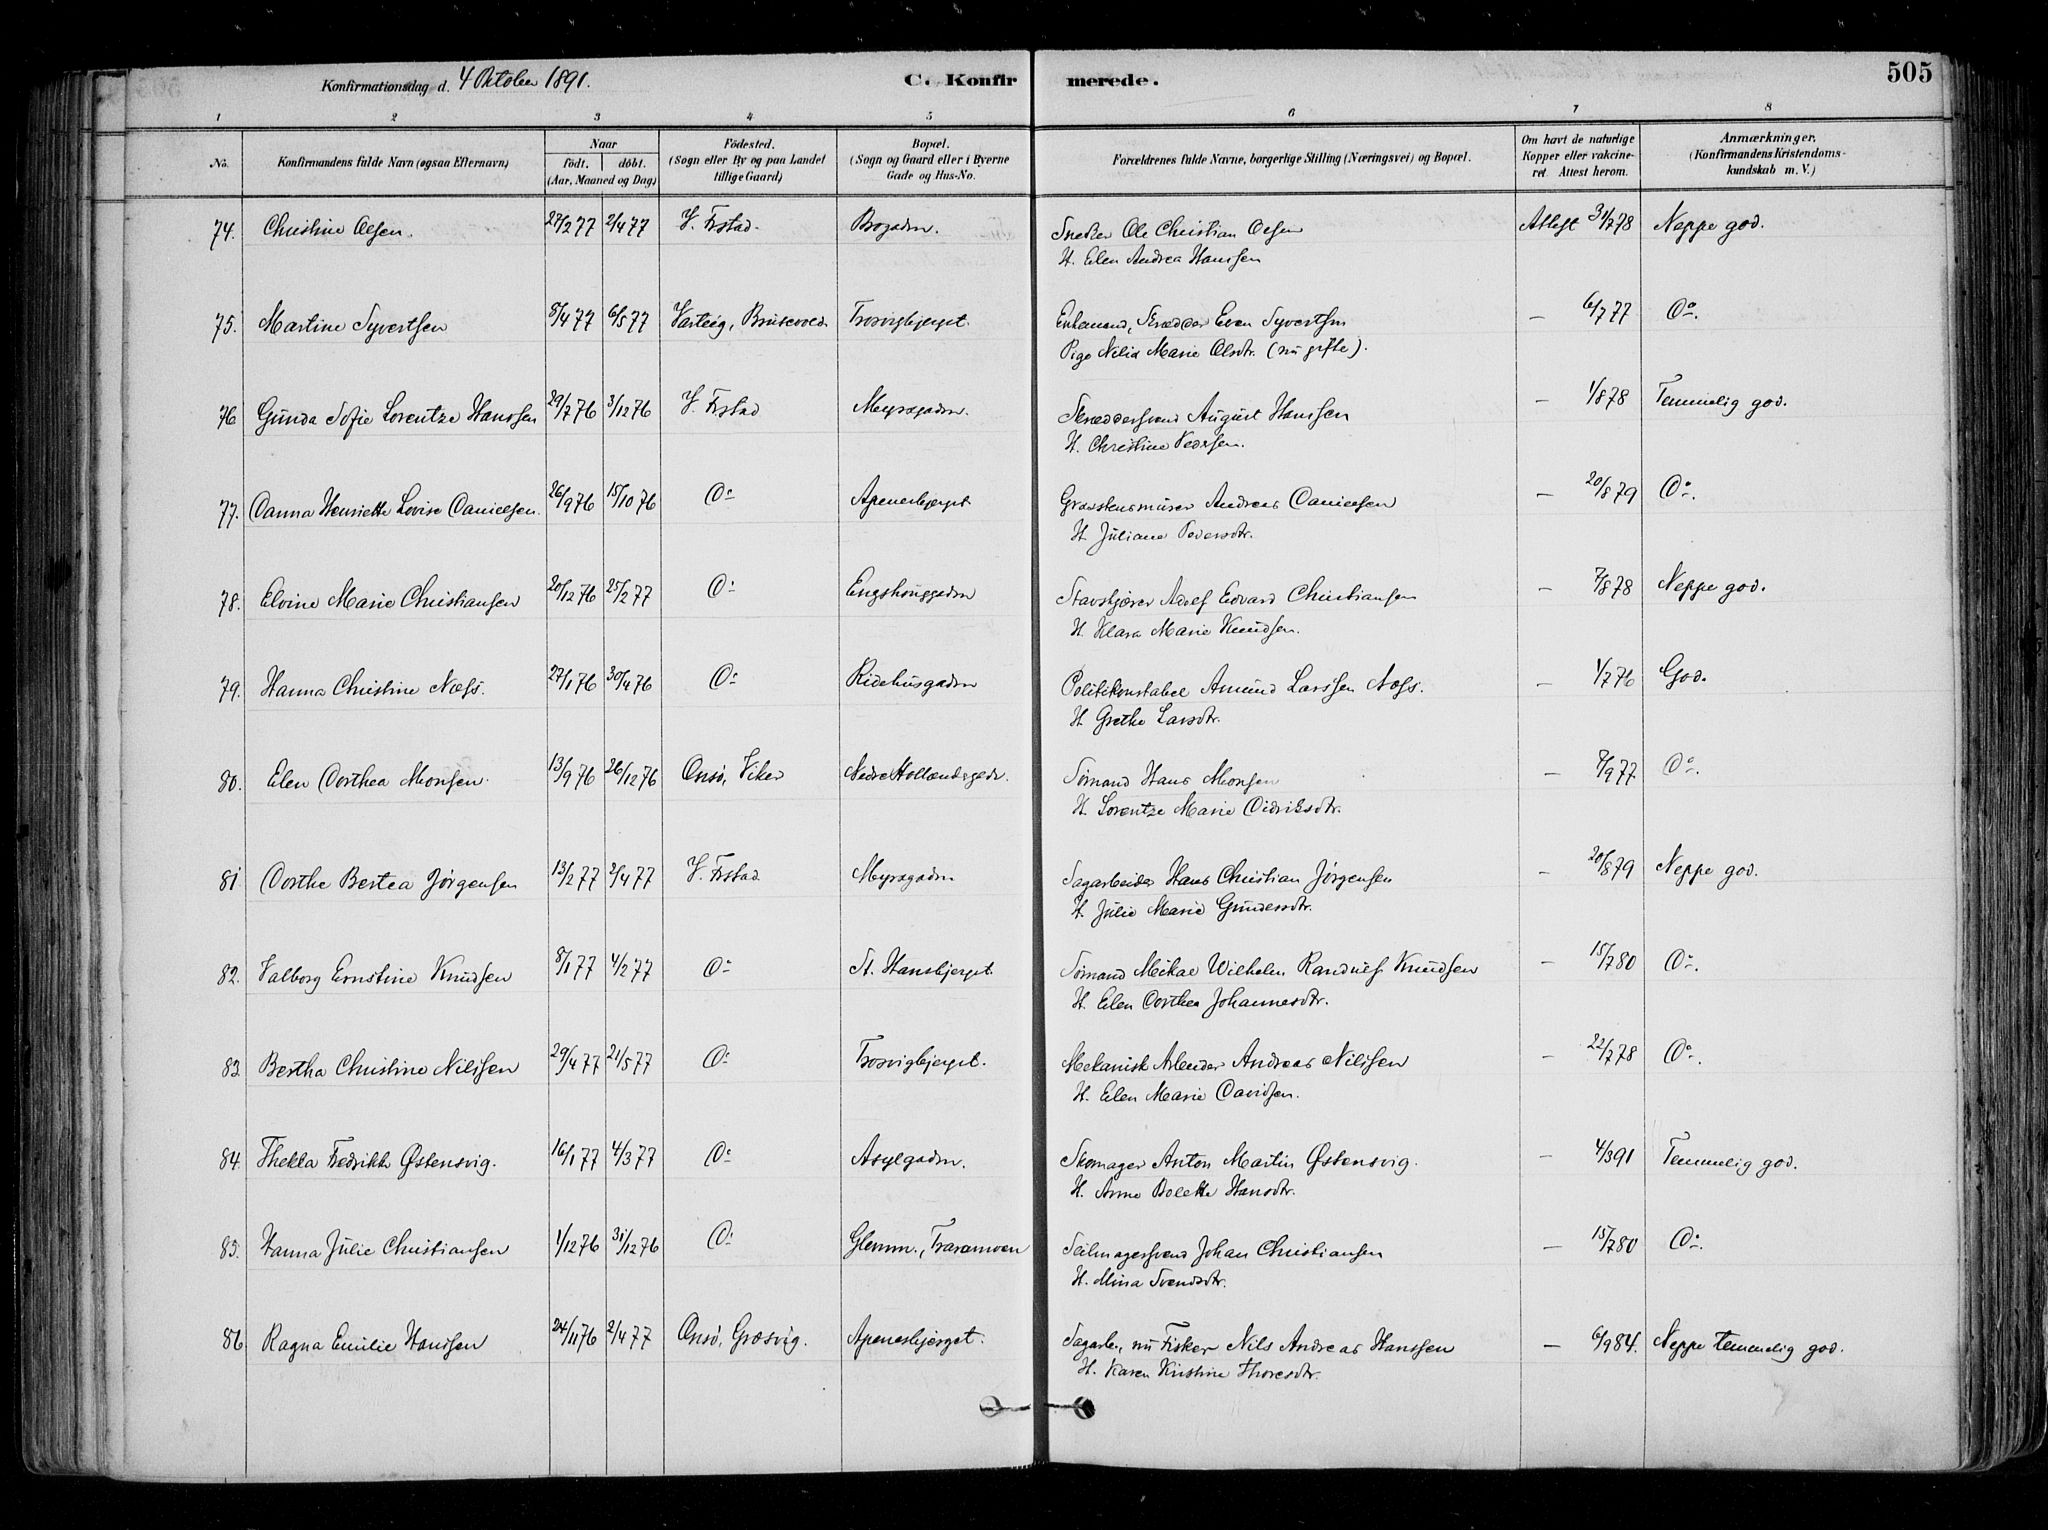 Konfirmationsdag d. 4 Oktober 1891.
C. Konfirmerede.
505
1 2 3 4 5 6 7 8
No. Konfirmandens fulde Navn (ogsaa Efternavn) Naar födt. döbt. (Aar, Maaned og Dag) Födested. (Sogn eller By og paa Landet tillige Gaard) Bopæl. (Sogn og Gaard eller i Byerne Gade og Hus-No. Forældrenes fulde Navne, borgerlige Stilling (Næringsvei) og Bopæl. Om havt de naturlige Kopper eller vakcineret. Attest herom. Anmærkninger. (Konfirmandens Kristendomskundskab m. V.)
74. Christine Olsen. 27/2 77 2/4 77 V. Frstad. Brogaden. Snedker Ole Christian Olsen Attest 31/7 78 Neppe god.
H. Elen Andrea Hanssen
75. Martine Syvertsen 8/4 77 6/5 77 Varteig, Brusevold Trosvigbjerget. Enkemand, Skrædder Even Syvertsen — 6/7 77 Do.
Pige Nilia Marie Olsdtr. (nu gifte).
76 Gunda Sofie Lorentze Hanssen 29/7 76 3/12 76 V. Frstad Myragaden. Skræddersvend August Hanssen — 1/8 78 Temmelig god.
H. Christine Pedersen.
77. Danna Henriette Lovise Danielsen. 26/9 76 15/10 76 Do Apenesbjerget Graastensmurer Andreas Danielsen — 20/8 79 Do.
H. Juliane Pedersdtr.
78. Elvine Marie Christiansen 20/12 76 25/2 77 Do Engshauggaden Stavskjører Adolf Edvard Christiansen — 7/8 78 Neppe god.
H. Klara Marie Knudsen.
79. Hanna Christine Næss. 27/1 76 30/4 76 Do Ridehusgaden Politikonstabel Amund Larssen Næss. — 1/7 76 God.
H. Grethe Larsdtr.
80. Elen Dorthea Monsen. 13/9 76 26/12 76 Onsö, Viker Nedre Hollendergaden. Sömand Hans Monsen — 7/9 77 Do.
H. Lorentze Marie Didriksdtr.
81 Dorthe Bertea Jörgensen 13/2 77 2/4 77 V. Frstad Myragaden Sagarbeider Hans Christian Jörgensen — 20/8 79 Neppe god.
H. Julie Marie Gundersdtr.
82. Valborg Ernstine Knudsen 8/1 77 4/2 77 Do St. Hansbjerget. Sömand Mikael Wilhelm Randulf Knudsen — 15/7 80 Do.
H. Elen Dorthea Johannesdtr.
83. Bertha Christine Nilssen 29/4 77 21/5 77 Do Trosvigbjerget. Mekanisk Arbeider Andreas Nilssen — 22/7 78 Do.
H. Elen Marie Davidsen.
84. Thekla Fredrikke Østensvig. 16/1 77 4/3 77 Do Asylgaden. Skomager Anton Martin Østensvig. — 4/3 91 Temmelig god.
H. Anne Bolette Hansdtr.
85. Hanna Julie Christiansen 1/12 76 31/12 76 Do Glemm., Traramoen Seilmagersvend Johan Christiansen — 15/7 80 Do.
H. Mina Svendsdtr.
86 Ragna Emilie Hanssen 24/11 76 2/4 77 Onsö, Græsvig. Apenesbjerget. Sagarb., nu Fisker Nils Andreas Hanssen — 6/9 84. Neppe temmelig god.
H. Karen Kristine Thoresdtr.